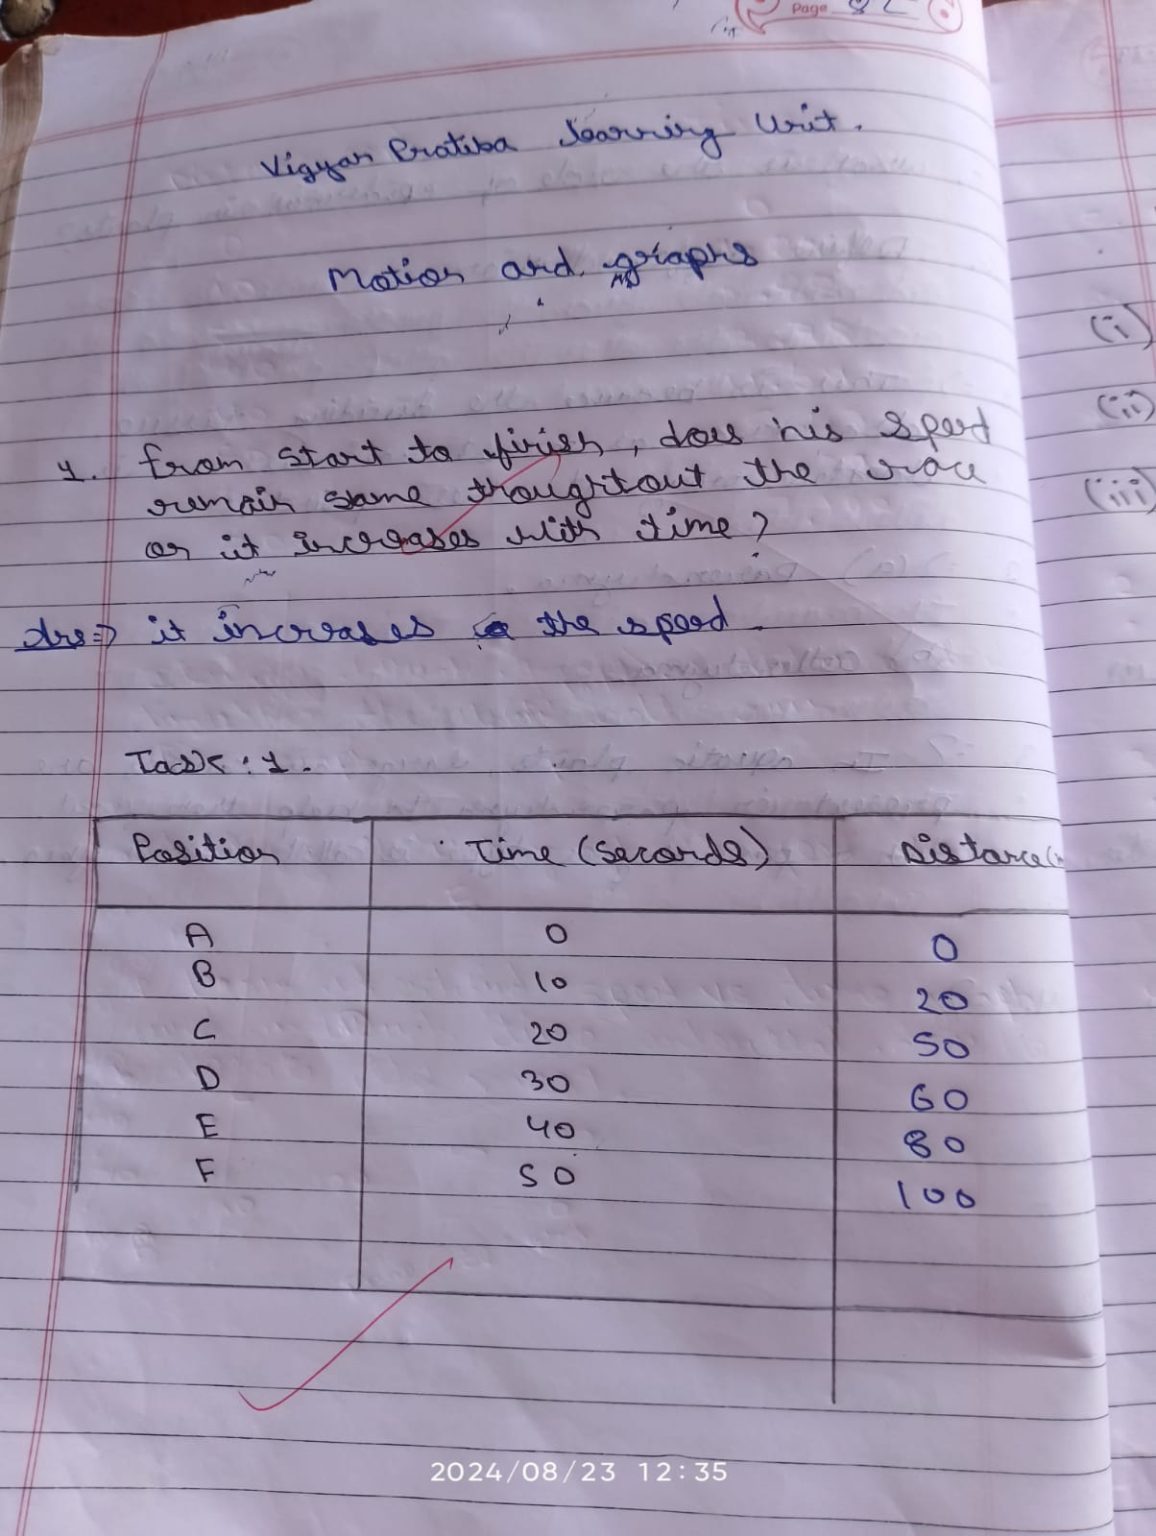 Page
Vigyan Pratiba learning Unit.
Motion and graphs
1. from start to finish, does his speed
remain same thoughtout the race
or it increases with time?
Ans=> it increases the speed.
Task: 1.
Position Time (Seconds) Distance(
A 0 0
B 10 20
C 20 50
D 30 60
E 40 80
F 50 100
(i)
(ii)
(iii)
2024/08/23 12:35